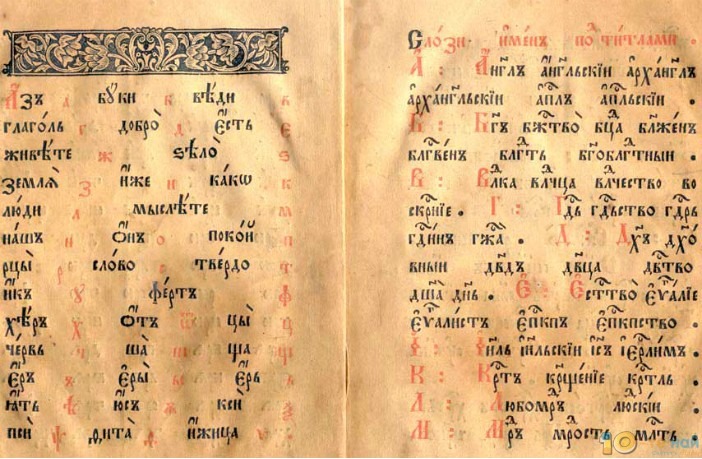 Азъ буки вѣди
глаголь добро есть
живѣте ж ѕѣло
земля иже како
люди мыслѣте
нашъ онъ покой
рцы слово твердо
икъ фертъ
хѣръ отъ цы
червь ша ща
еръ еры ерь
ять юсъ кси
пси ѳита ижица
Слози именъ по титлами .
А : Агг҃лъ аг҃гльскїи арха́нг҃лъ
арха́нг҃льскїи ап҃лъ ап҃льскїи .
В : Бг҃ъ бж҃тво бц҃а бл҃женъ
блг҃венъ блг҃ть бг҃облг҃тныи .
В : Вл҃ка влч҃ца влч҃ество во
скр҃нїе . Г : Гд҃ь гд҃ьство гд҃рь
гд҃инъ гж҃а . Д : Дх҃ъ дх҃о
вныи дв҃дъ дв҃ца дв҃тво
дш҃а дн҃ь . Е : Ест҃тво еѵа҃лїе
еѵа҃листъ еп҃кпъ еп҃кпство .
І҃иль іи҃льскїи іс҃ъ іер҃лимъ .
К : Кр҃тъ кр҃щенїе кр҃тль
Л : Любомр҃ъ люс҃кїи .
М : Мр҃ъ мр҃ость мл҃ть .